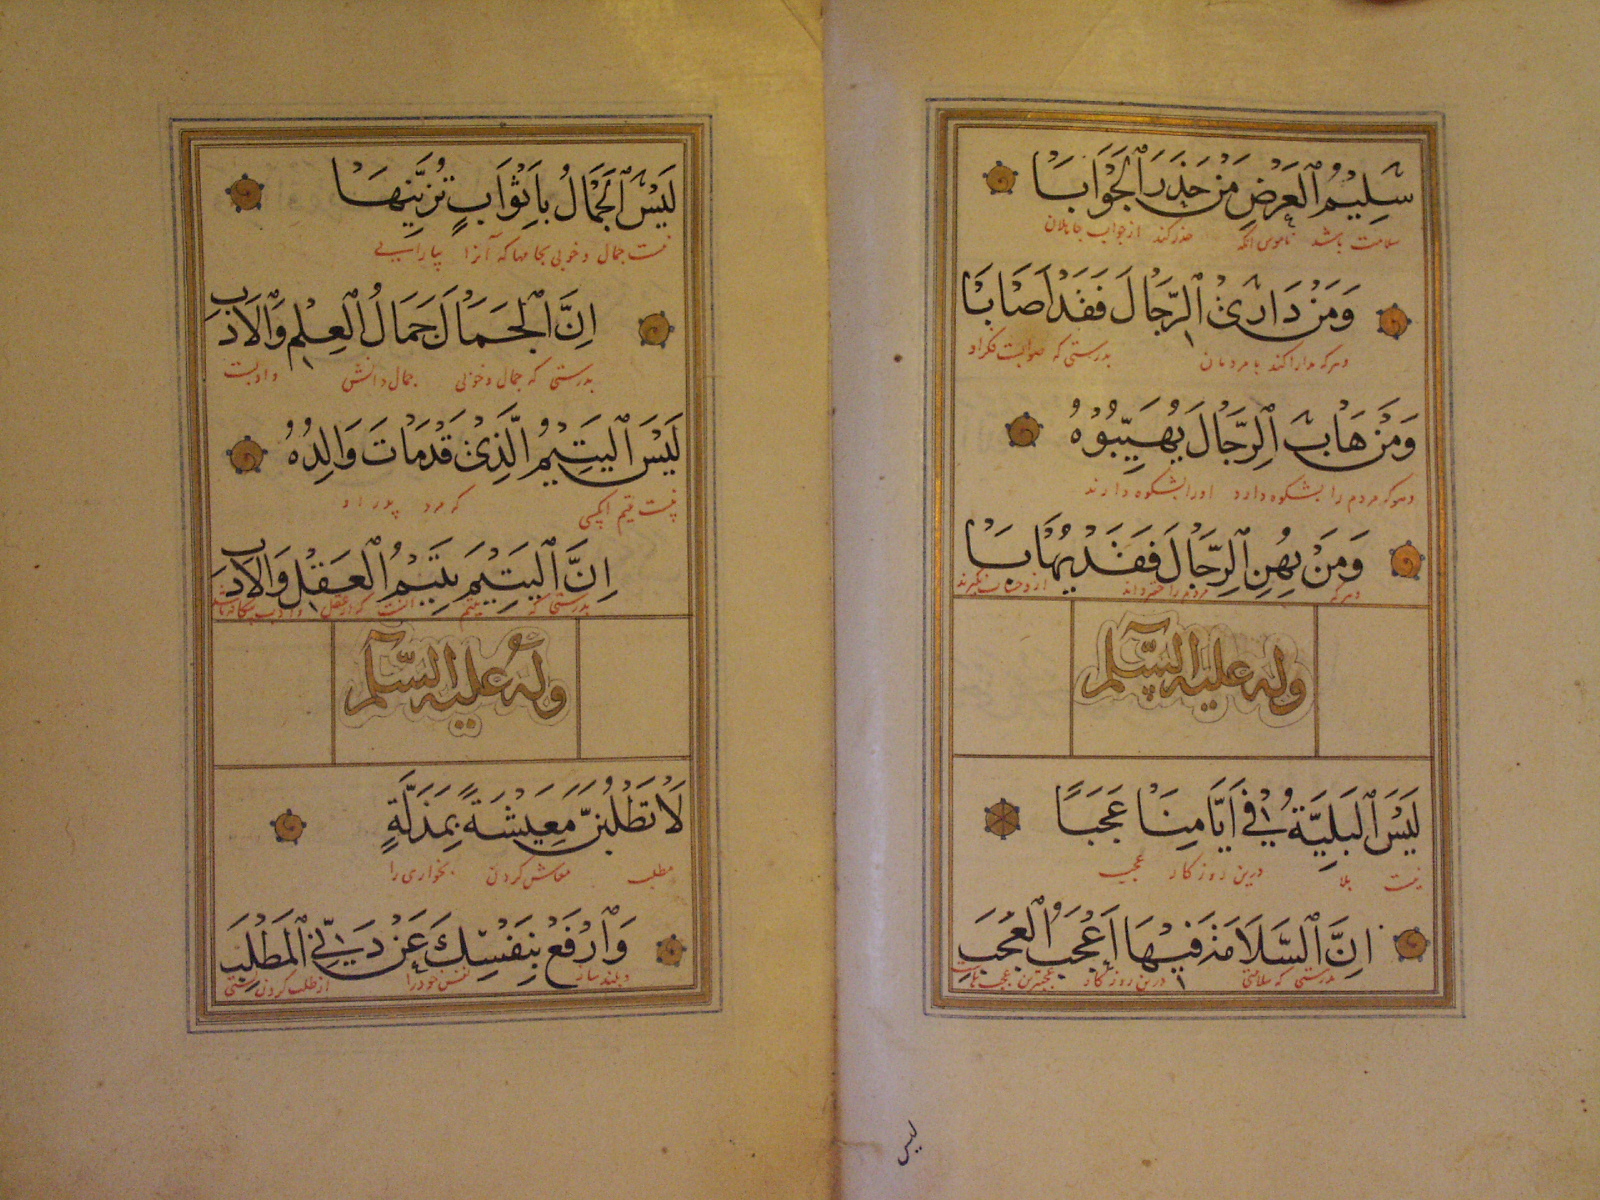 سَلِيْمُ الْعَرْضِ مَنْ حَذَرَ الْجَوَابَا
سلامت باشد ناموس انکه حذر کند از جواب جاهلان
وَمَنْ دَارَىْ الرِّجَالَ فَقَدْ اَصَابَا
وهرکه مدارا کند با مردمان بدرستی که صوابست فکر او
وَمَنْ هَابَ الرِّجَالَ يُهَيِّبُوْهُ
وهرکه مردم را بشکوه دارد اورا بشکوه دارند
وَمَنْ يُهِنِ الرِّجَالَ فَقَدْ يُهَابَا
وهرکه مردم را
وله عليه السّلم
لَيْسَ الْبَلِيَّةُ فِيْ اَيَّامِنَا عَجَبًا
نیست بلا درین روزکار عجب
اِنَّ السَّلَامَةَ فِيْهَا اَعْجَبُ الْعَجَبِ
بدرستی که سلامتی درین روزکار عجبترین عجبهاست
ليس
لَيْسَ الْجَمَالُ بِاَثْوَابٍ تُزَيِّنُهَا
نیست جمال وخوبی بجامها که آنرا بیارایی
اِنَّ الْجَمَالَ جَمَالُ الْعِلْمِ وَالْاَدَبِ
بدرستی که جمال وخوبی جمال دانش وادبست
لَيْسَ الْيَتِيْمُ الَّذِيْ قَدْ مَاتَ وَالِدُهُ
نیست یتیم انکسی که مرد پدر او
اِنَّ الْيَتِيْمَ يَتِيْمُ الْعَقْلِ وَالْاَدَبِ
بدرستی که یتیم انست که از عقل وادب
وله عليه السّلم
لَا تَطْلُبَنَّ مَعِيْشَةً بِمَذَلَّةٍ
مطلب معاش کردن بخواری را
وَارْفَعْ بِنَفْسِكَ عَنْ دَنِيِّ الْمَطْلَبِ
وبلند ساز نفس خود را از طلب کردن